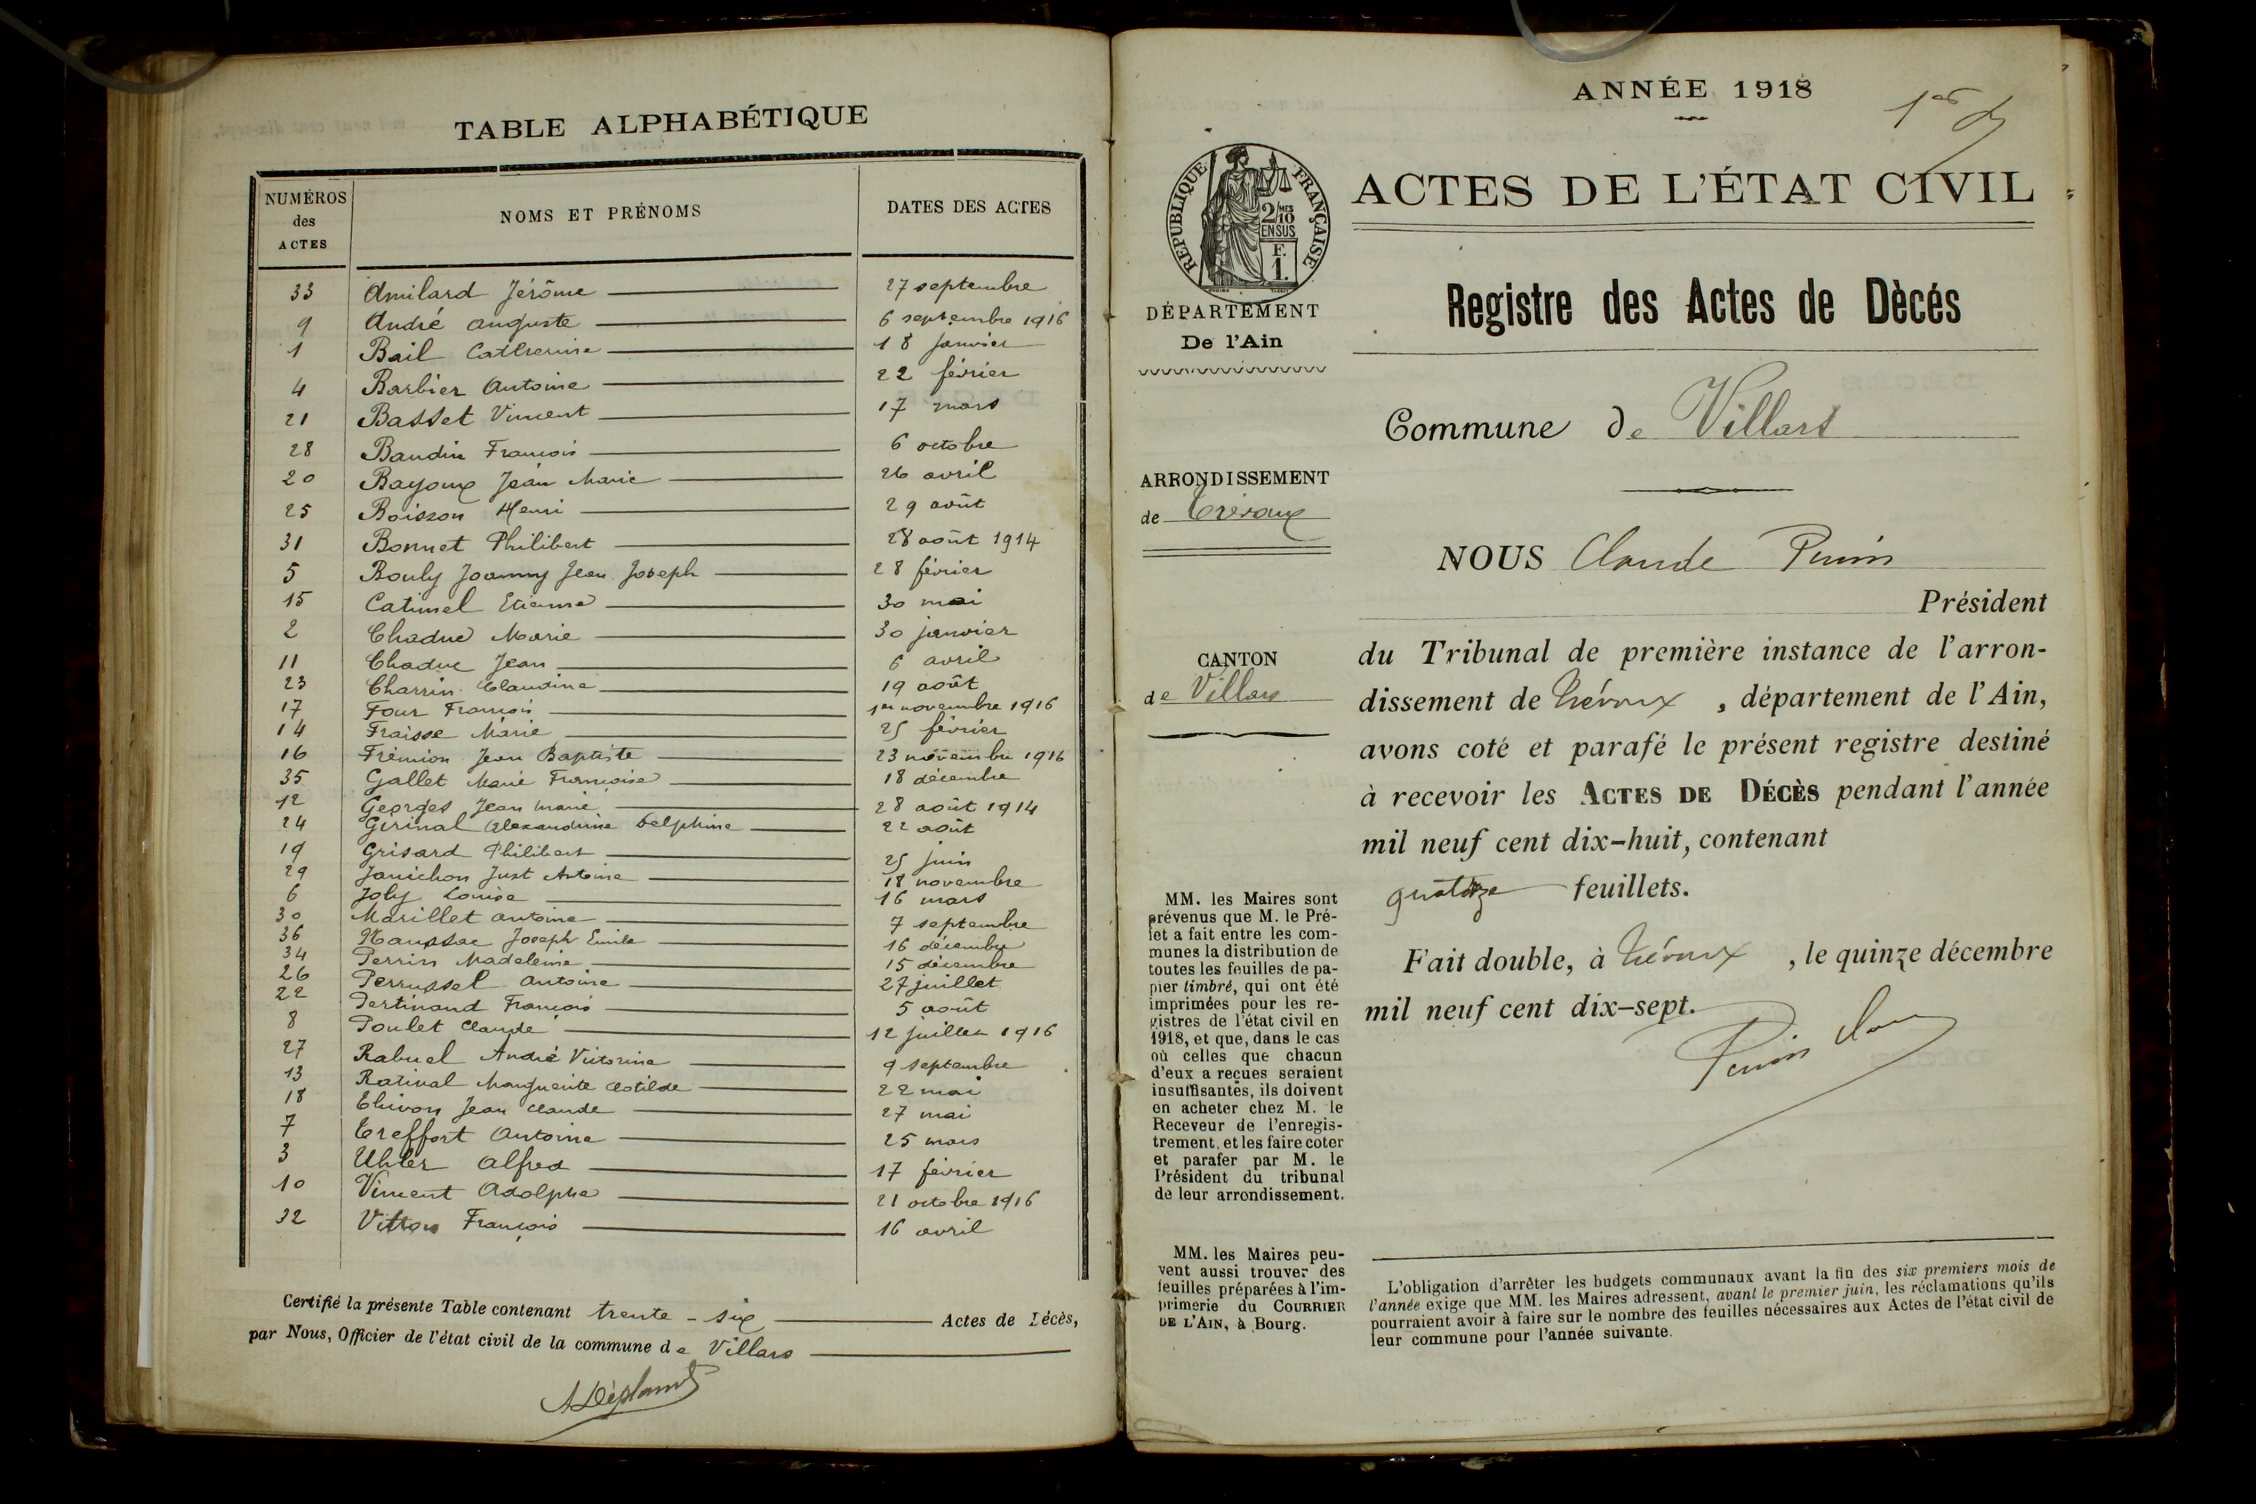 TABLE ALPHABÉTIQUE
NUMÉROS des ACTES NOMS ET PRÉNOMS DATES DES ACTES
33 Amilard Jérôme 27 septembre
9 André Auguste 6 septembre 1916
1 Bail Catherine 18 janvier
4 Barbier Antoine 22 février
21 Basset Vincent 17 mars
28 Baudin François 6 octobre
20 Bayoux Jean Marie 26 avril
25 Boisson Henri 29 août
31 Bonnet Philibert 28 août 1914
5 Bouly Joanny Jean Joseph 28 février
15 Catimel Etienne 30 mai
2 Chaduc Marie 30 janvier
11 Chaduc Jean 6 avril
23 Charrin Claudine 19 août
17 Four François 1er novembre 1916
14 Fraisse Marie 25 février
16 Frémion Jean Baptiste 23 novembre 1916
35 Gallet Marie Françoise 18 décembre
12 Georges Jean Marie 28 août 1914
24 Girinal Alexandrine Delphine 22 août
19 Grisard Philibert 25 juin
29 Janichon Just Antoine 18 novembre
6 Joly Louise 16 mars
30 Marillet Antoine 7 septembre
36 Joseph Emile 16 décembre
34 Perrin Madeleine 15 décembre
26 Perrussel Antoine 27 juillet
22 Pertinand François 5 août
8 Poulet Claude 12 juillet 1916
27 Rabuel André Victorine 9 septembre
13 Ratival Marguerite Clotilde 22 mai
18 Thivon Jean Claude 27 mai
7 Treffort Antoine 25 mars
3 Uhler Alfred 17 février
10 Vincent Adolphe 21 octobre 1916
32 Vitton François 16 avril
Certifié la présente Table contenant trente-six Actes de Décès,
par Nous, Officier de l'état civil de la commune de Villars
ANNÉE 1918
ACTES DE L'ÉTAT CIVIL
RÉPUBLIQUE FRANÇAISE
2/10 MES
EN SUS
F.
1.
DÉPARTEMENT
De l'Ain
Registre des Actes de Dècés
Commune de Villars
ARRONDISSEMENT
de Trévoux
NOUS Claude
Président
CANTON
de Villars
du Tribunal de première instance de l'arron-
dissement de Trévoux, département de l'Ain,
avons coté et parafé le présent registre destiné
à recevoir les ACTES DE DÉCÈS pendant l'année
mil neuf cent dix-huit, contenant
quatorze feuillets.
Fait double, à Trévoux, le quinze décembre
mil neuf cent dix-sept.
MM. les Maires sont
prévenus que M. le Pré-
fet a fait entre les com-
munes la distribution de
toutes les feuilles de pa-
pier timbré, qui ont été
imprimées pour les re-
gistres de l'état civil en
1918, et que, dans le cas
où celles que chacun
d'eux a reçues seraient
insuffisantes, ils doivent
en acheter chez M. le
Receveur de l'enregis-
trement, et les faire coter
et parafer par M. le
Président du tribunal
de leur arrondissement.
MM. les Maires peu-
vent aussi trouver des
feuilles préparées à l'im-
primerie du COURRIER
DE L'AIN, à Bourg.
L'obligation d'arrêter les budgets communaux avant la fin des six premiers mois de
l'année exige que MM. les Maires adressent, avant le premier juin, les réclamations qu'ils
pourraient avoir à faire sur le nombre des feuilles nécessaires aux Actes de l'état civil de
leur commune pour l'année suivante.